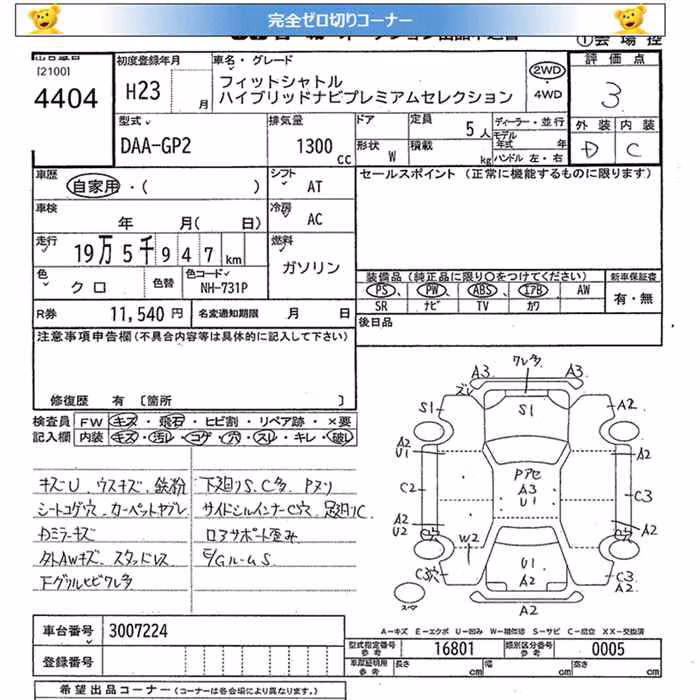 完全ゼロ切りコーナー
①会場控
[2100]
4404
初度登録年月
H23 月
車名・グレード
フィットシャトル
ハイブリッドナビプレミアムセレクション
2WD
・
4WD
評価点
3
外装 内装
D C
型式
DAA-GP2
排気量
1300 cc
ドア
形状 W
定員 5人
積載 kg
ディーラー・並行
モデル年式 年
ハンドル 左・右
車歴
自家用・( )
シフト AT
セールスポイント (正常に機能するものに限ります)
車検
年 月( 日)
冷房 AC
走行
19万5千947km
燃料
ガソリン
色 クロ
色替
色コード NH-731P
装備品(純正品に限り○をつけてください)
新車保証書
PS PW ABS エアB AW
SR ナビ TV カワ
有・無
R券 11,540円
名変通知期限 月 日
後日品
注意事項申告欄(不具合内容等は具体的に記入して下さい)
修復歴 有 [箇所 ]
検査員記入欄
FW キズ・飛石・ヒビ割・リペア跡・×要
内装 キズ・汚レ・コゲ・穴・スレ・キレ・破レ
キズU、ウスキズ、鉄粉
シートコゲ穴、カーペットヤブレ
Dミラーキズ
外AWキズ、スタッドレス
Fグリルヒビワレ多
下廻りS、C多、Pヌリ
サイドシルインナーC穴、足廻りC
ロアサポート歪み
E/GルームS
ワレ多
A3 A3
ズレ
S1 S1 A2
A2
U1
A2
Pアセ
A3
U1
C2 C3
A2
U2
A2
W2
U1
A2
C3穴
C3
A2
A2
スペア
A-キズ E-エクボ U-凹み W-補修跡 S-サビ C-腐食 XX-交換済
車台番号 3007224
登録番号
型式指定番号 参考 16801
類別区分番号 参考 0005
車庫証明用 参考 長さ 幅 高さ
希望出品コーナー (コーナーは各会場により異なります。)